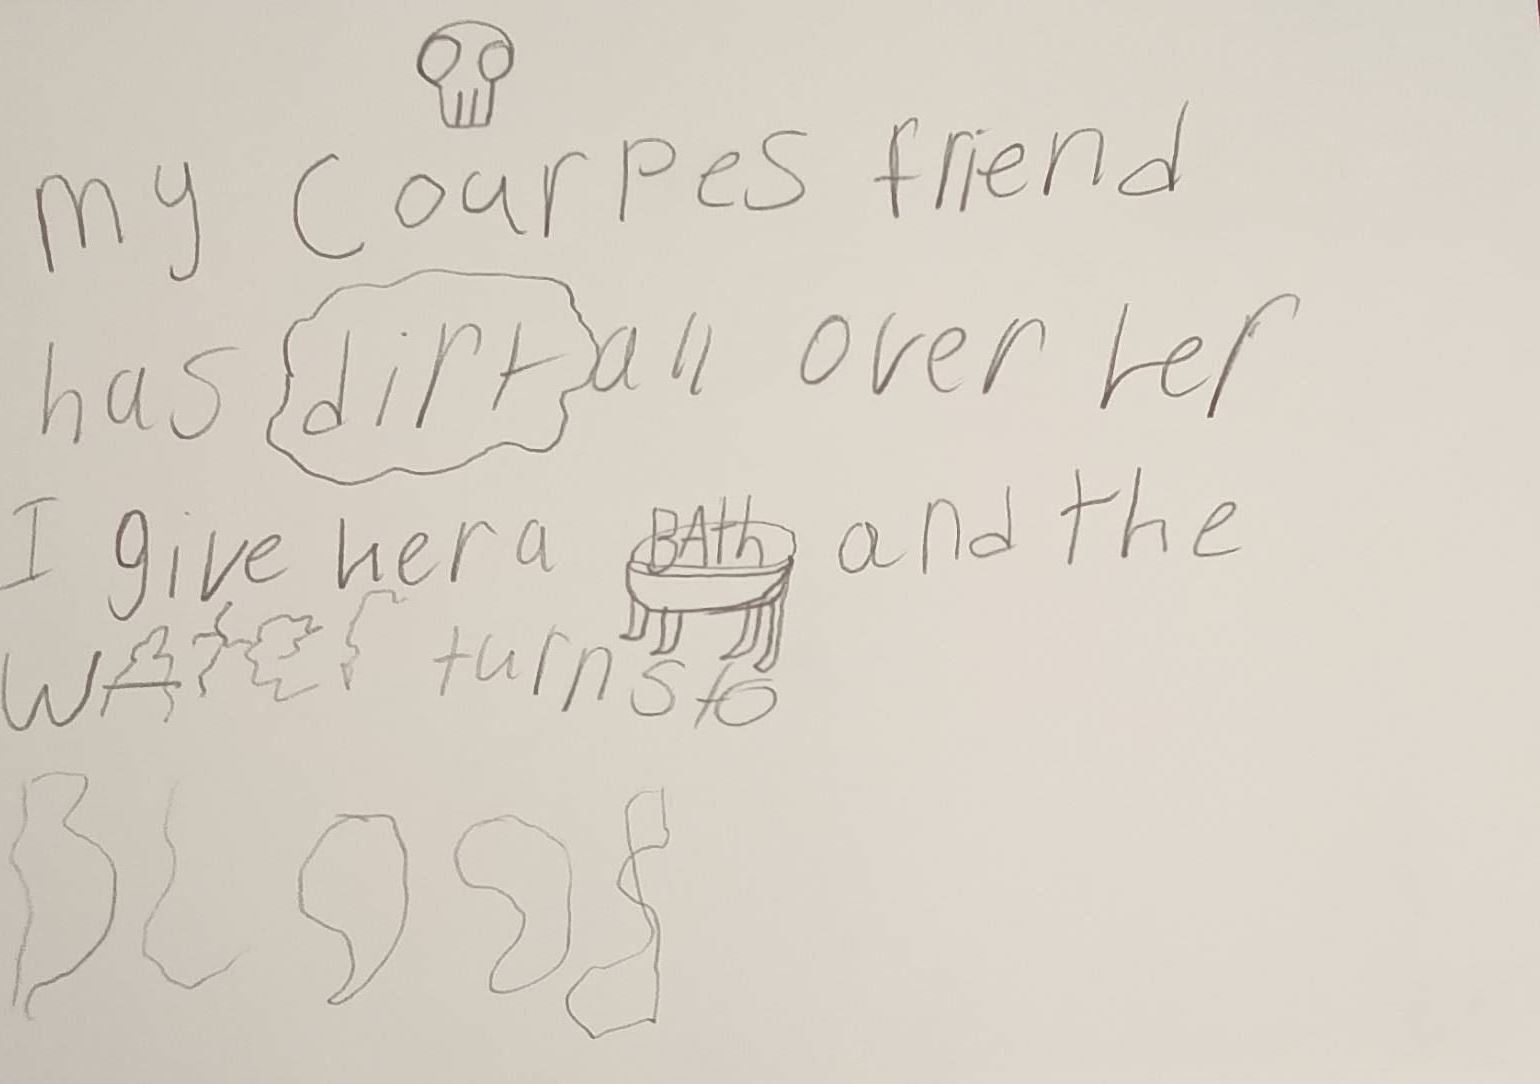 my CourPes friend
has dirt all over her
I give her a BAth and the
WAter turns to
BLood